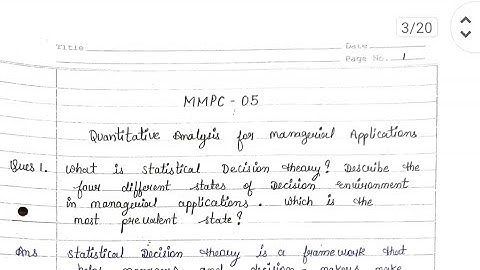 3/20
Title Date
Page No. 1
MMPC - 05
Quantitative Analysis for managerial Applications
Ques 1. What is Statistical Decision theory? Describe the
four different states of Decision environment
in managerial applications. Which is the
most prevalent state?
Ans Statistical Decision theory is a framework that
helps managers and decision makers make